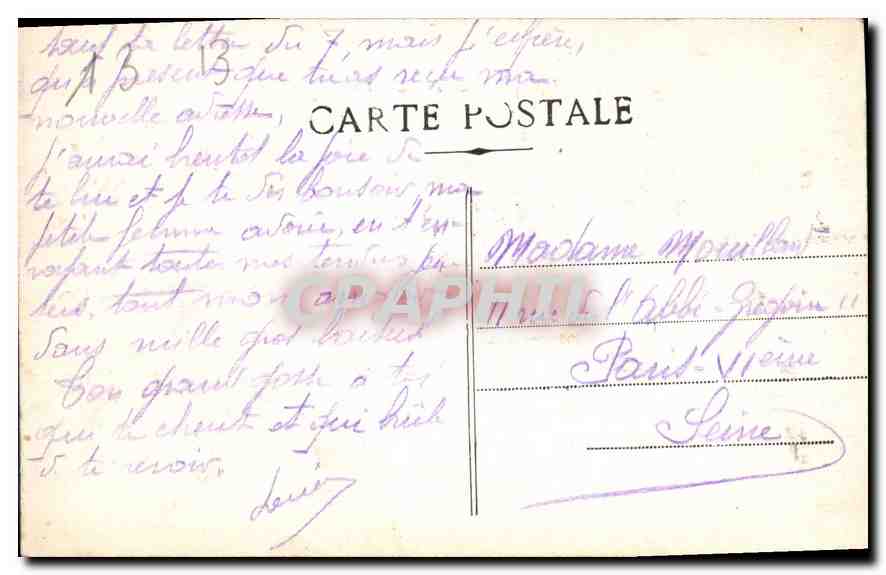 ta lettre du 7, mais j'espère,
qu'à présent que tu as reçu ma
nouvelle adresse,
j'aurai bientot la joie de
te lire et je te dis bonsoir, ma
petite femme adorée, en t'en-
voyant toutes mes tendres pen-
sées, tout mon amour
dans mille gros baisers
Ton grand gosse à toi
qui te chérit et qui brûle
de te revoir.
13 13
CARTE POSTALE
Madame Mouillard
11 rue de l'Abbé-Grégoire 11
Paris-VIème
Seine
CPAPHIL